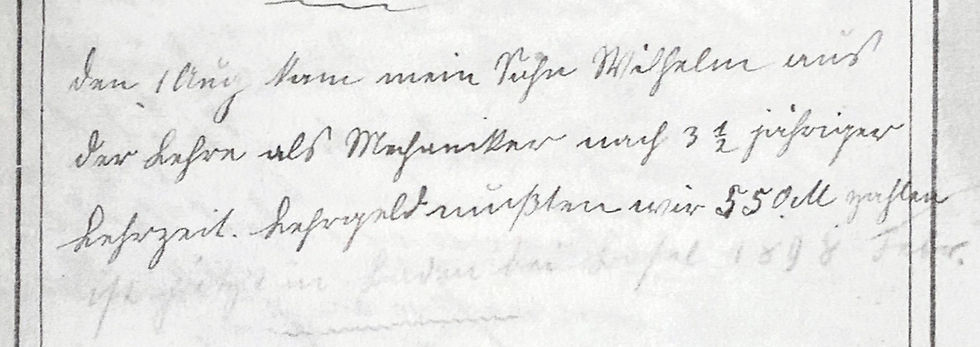 den 1 Aug kam mein Sohn Wilhelm aus
der Lehre als Mechaniker nach 3 1/2 jähriger
Lehrzeit. Lehrgeld mußten wir 550 M zahlen
ist jetzt in Baden bei Basel 1898 Febr.